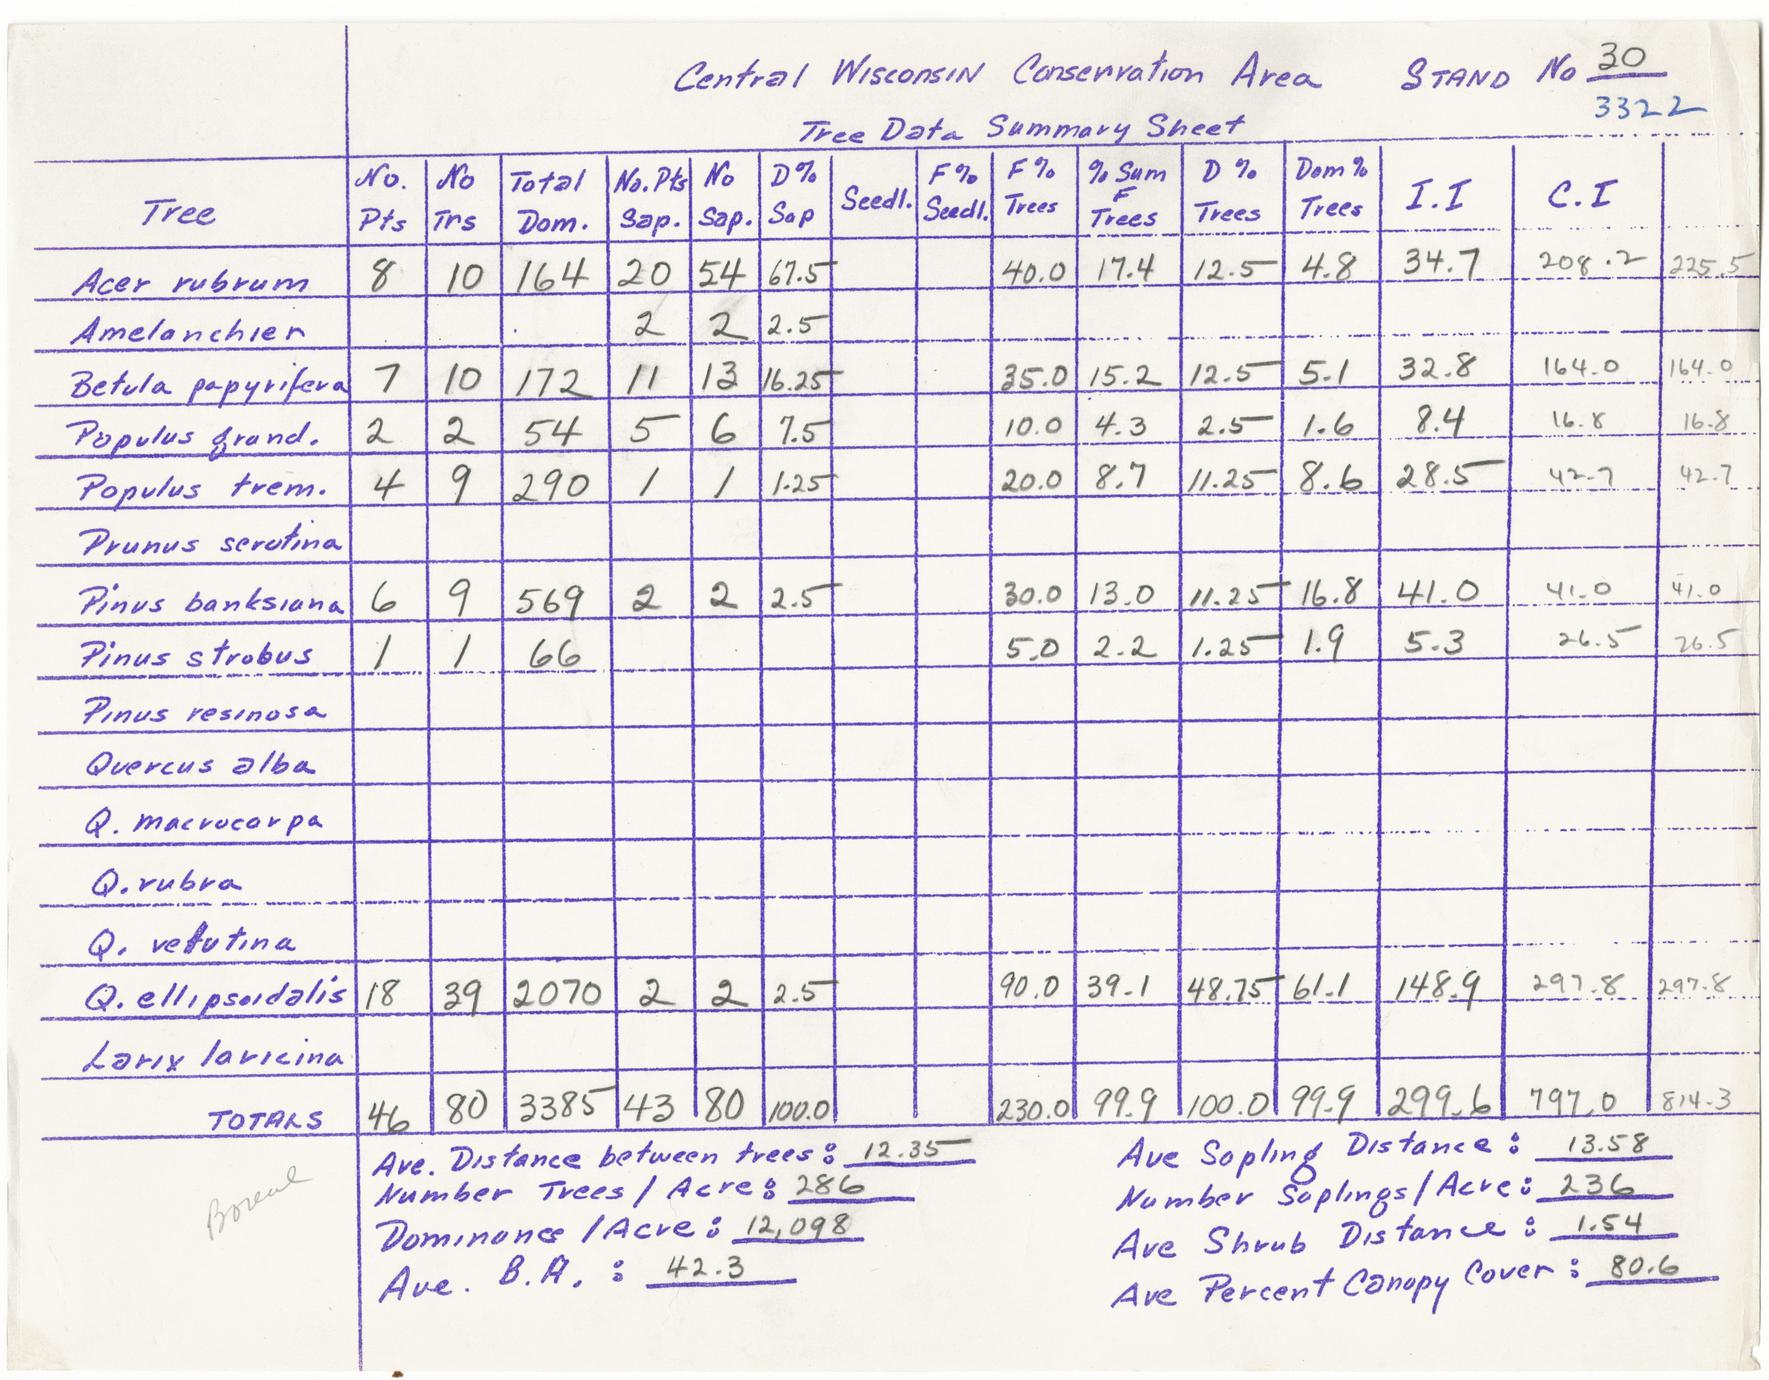 Central Wisconsin Conservation Area STAND No 30
3322
Tree Data Summary Sheet
Tree | No. Pts | No Trs | Total Dom. | No. Pts Sap. | No Sap. | D % Sap | Seedl. | F % Seedl. | F % Trees | % Sum F Trees | D % Trees | Dom % Trees | I.I | C.I
Acer rubrum 8 10 164 20 54 67.5 40.0 17.4 12.5 4.8 34.7 208.2 225.5
Amelanchier 2 2 2.5
Betula papyrifera 7 10 172 11 13 16.25 35.0 15.2 12.5 5.1 32.8 164.0 164.0
Populus grand. 2 2 54 5 6 7.5 10.0 4.3 2.5 1.6 8.4 16.8 16.8
Populus trem. 4 9 290 1 1 1.25 20.0 8.7 11.25 8.6 28.5 42.7 42.7
Prunus serotina
Pinus banksiana 6 9 569 2 2 2.5 30.0 13.0 11.25 16.8 41.0 41.0 41.0
Pinus strobus 1 1 66 5.0 2.2 1.25 1.9 5.3 26.5 26.5
Pinus resinosa
Quercus alba
Q. macrocarpa
Q. rubra
Q. velutina
Q. ellipsoidalis 18 39 2070 2 2 2.5 90.0 39.1 48.75 61.1 148.9 297.8 297.8
Larix laricina
TOTALS 46 80 3385 43 80 100.0 230.0 99.9 100.0 99.9 299.6 797.0 814.3
Ave. Distance between trees: 12.35
Number Trees / Acre: 286
Dominance / Acre: 12,098
Ave. B.A. : 42.3
Ave Sapling Distance: 13.58
Number Saplings / Acre: 236
Ave Shrub Distance: 1.54
Ave Percent Canopy Cover: 80.6
Boreal